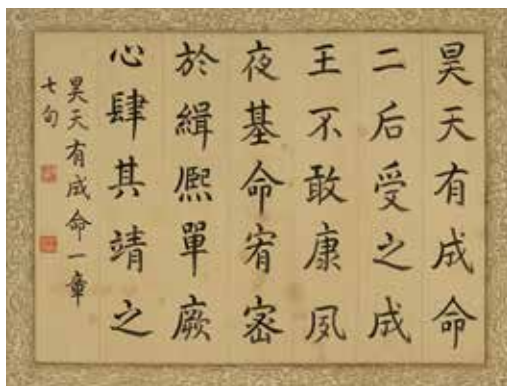 昊天有成命
二后受之成
王不敢康夙
夜基命宥密
於緝熈單厥
心肆其靖之
昊天有成命一章
七句